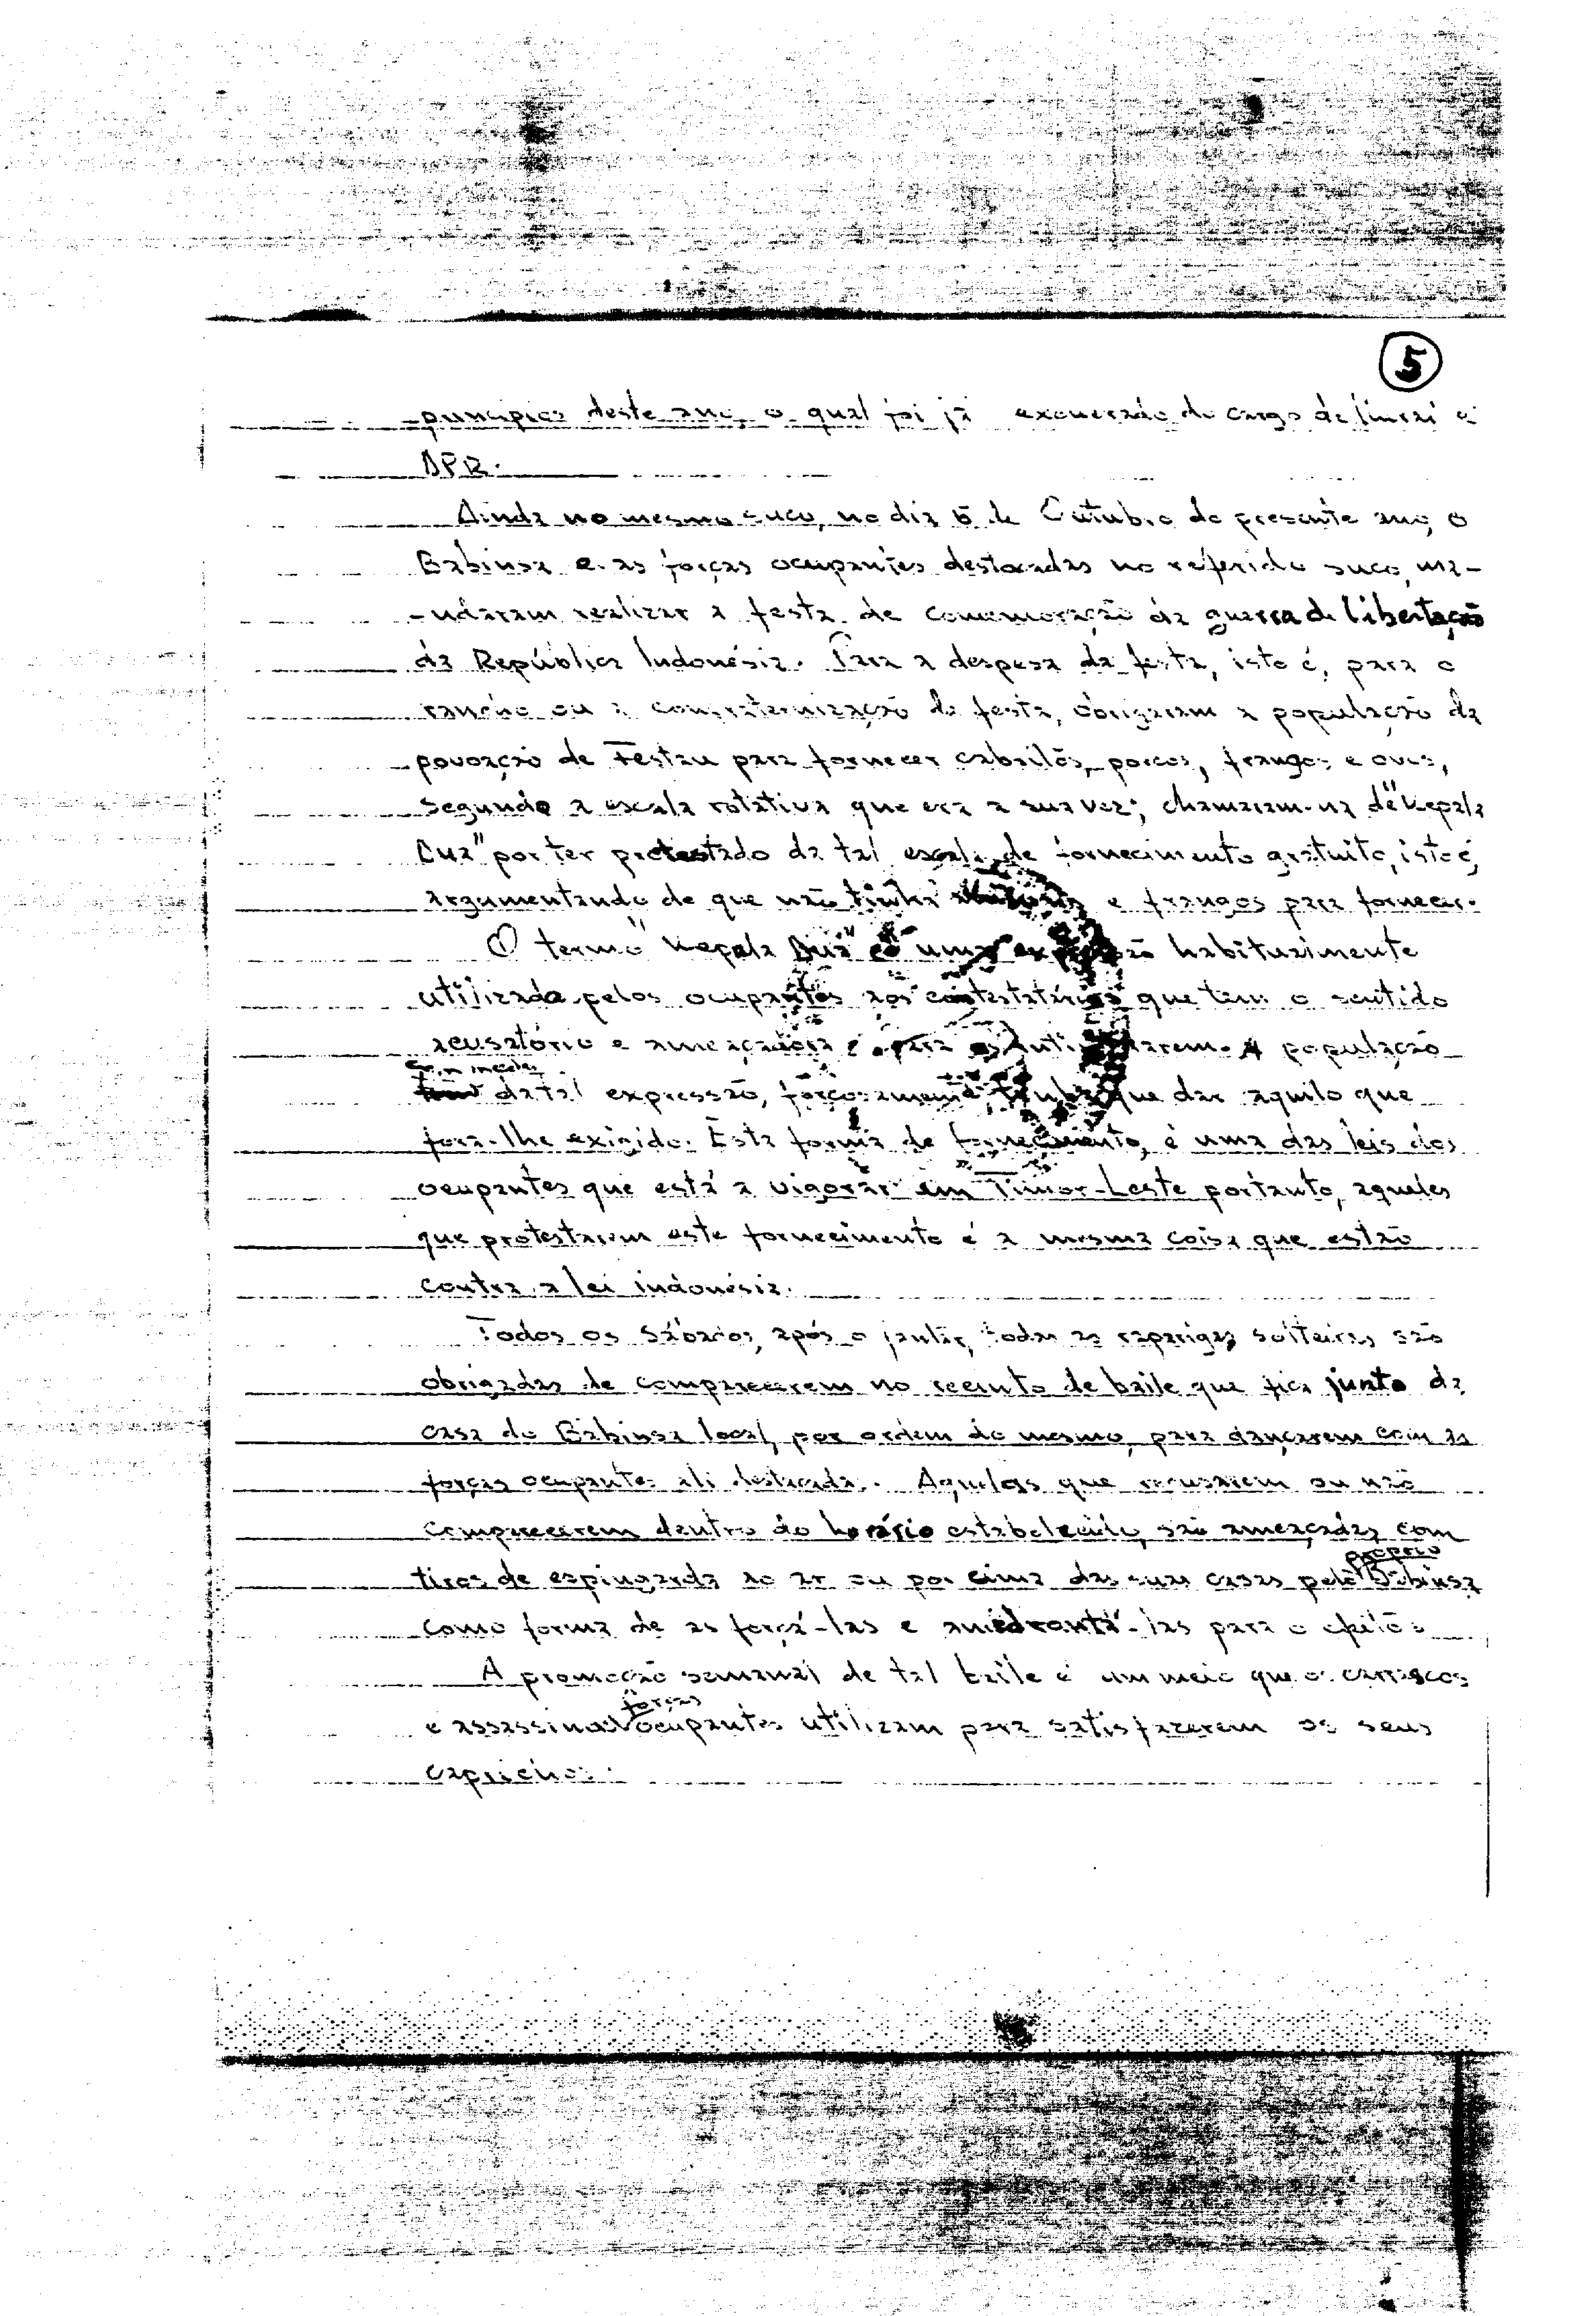 5
principios deste ano, o qual foi já exonerado do cargo de liurai e
DPR.
Ainda no mesmo suco, no dia 5 de Outubro do presente ano, o
Babinsa e as forças ocupantes destacadas no referido suco, ma-
-ndaram realizar a festa de comemoração da guerra de libertação
da República Indonésia. Para a despesa da festa, isto é, para o
rancho ou a confraternização da festa, obrigaram a população da
povoação de Festau para fornecer cabritos, porcos, frangos e ovos,
segundo a escala rotativa que era a sua vez; chamaram-na de "Kepala
Dua" por ter protestado da tal escala de fornecimento gratuito, isto é,
argumentando de que não tinha e frangos para fornecer.
O termo "Kepala Dua" é uma expressão habitualmente
utilizada pelos ocupantes aos contestatários que tem o sentido
acusatório e ameaçadora para A população
com medo da tal expressão, forçosamente, tinha que dar aquilo que
fora-lhe exigido. Esta forma de fornecimento, é uma das leis dos
ocupantes que está a vigorar em Timor-Leste portanto, aqueles
que protestarem este fornecimento é a mesma coisa que estão
contra a lei indonésia.
Todos os Sábados, após o jantar, todas as raparigas solteiras são
obrigadas de comparecerem no recinto de baile que fica junto da
casa do Babinsa local, por ordem do mesmo, para dançarem com as
forças ocupantes ali destacadas. Aquelas que recusarem ou não
comparecerem dentro do horário estabelecido, são ameaçadas com
tiros de espingarda ao ar ou por cima das suas casas pelo próprio Babinsa
como forma de as forçá-las e amedrontá-las para o efeito.
A promoção semanal de tal baile é um meio que os carrascos
e assassinas forças ocupantes utilizam para satisfazerem os seus
caprichos.